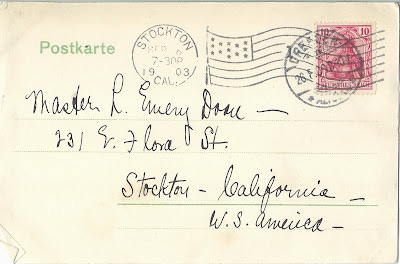 Postkarte
STOCKTON
7-30P
1903
CAL.
10
Master L. Emery Doan —
231 E. Flora St.
Stockton — California —
U.S. America —